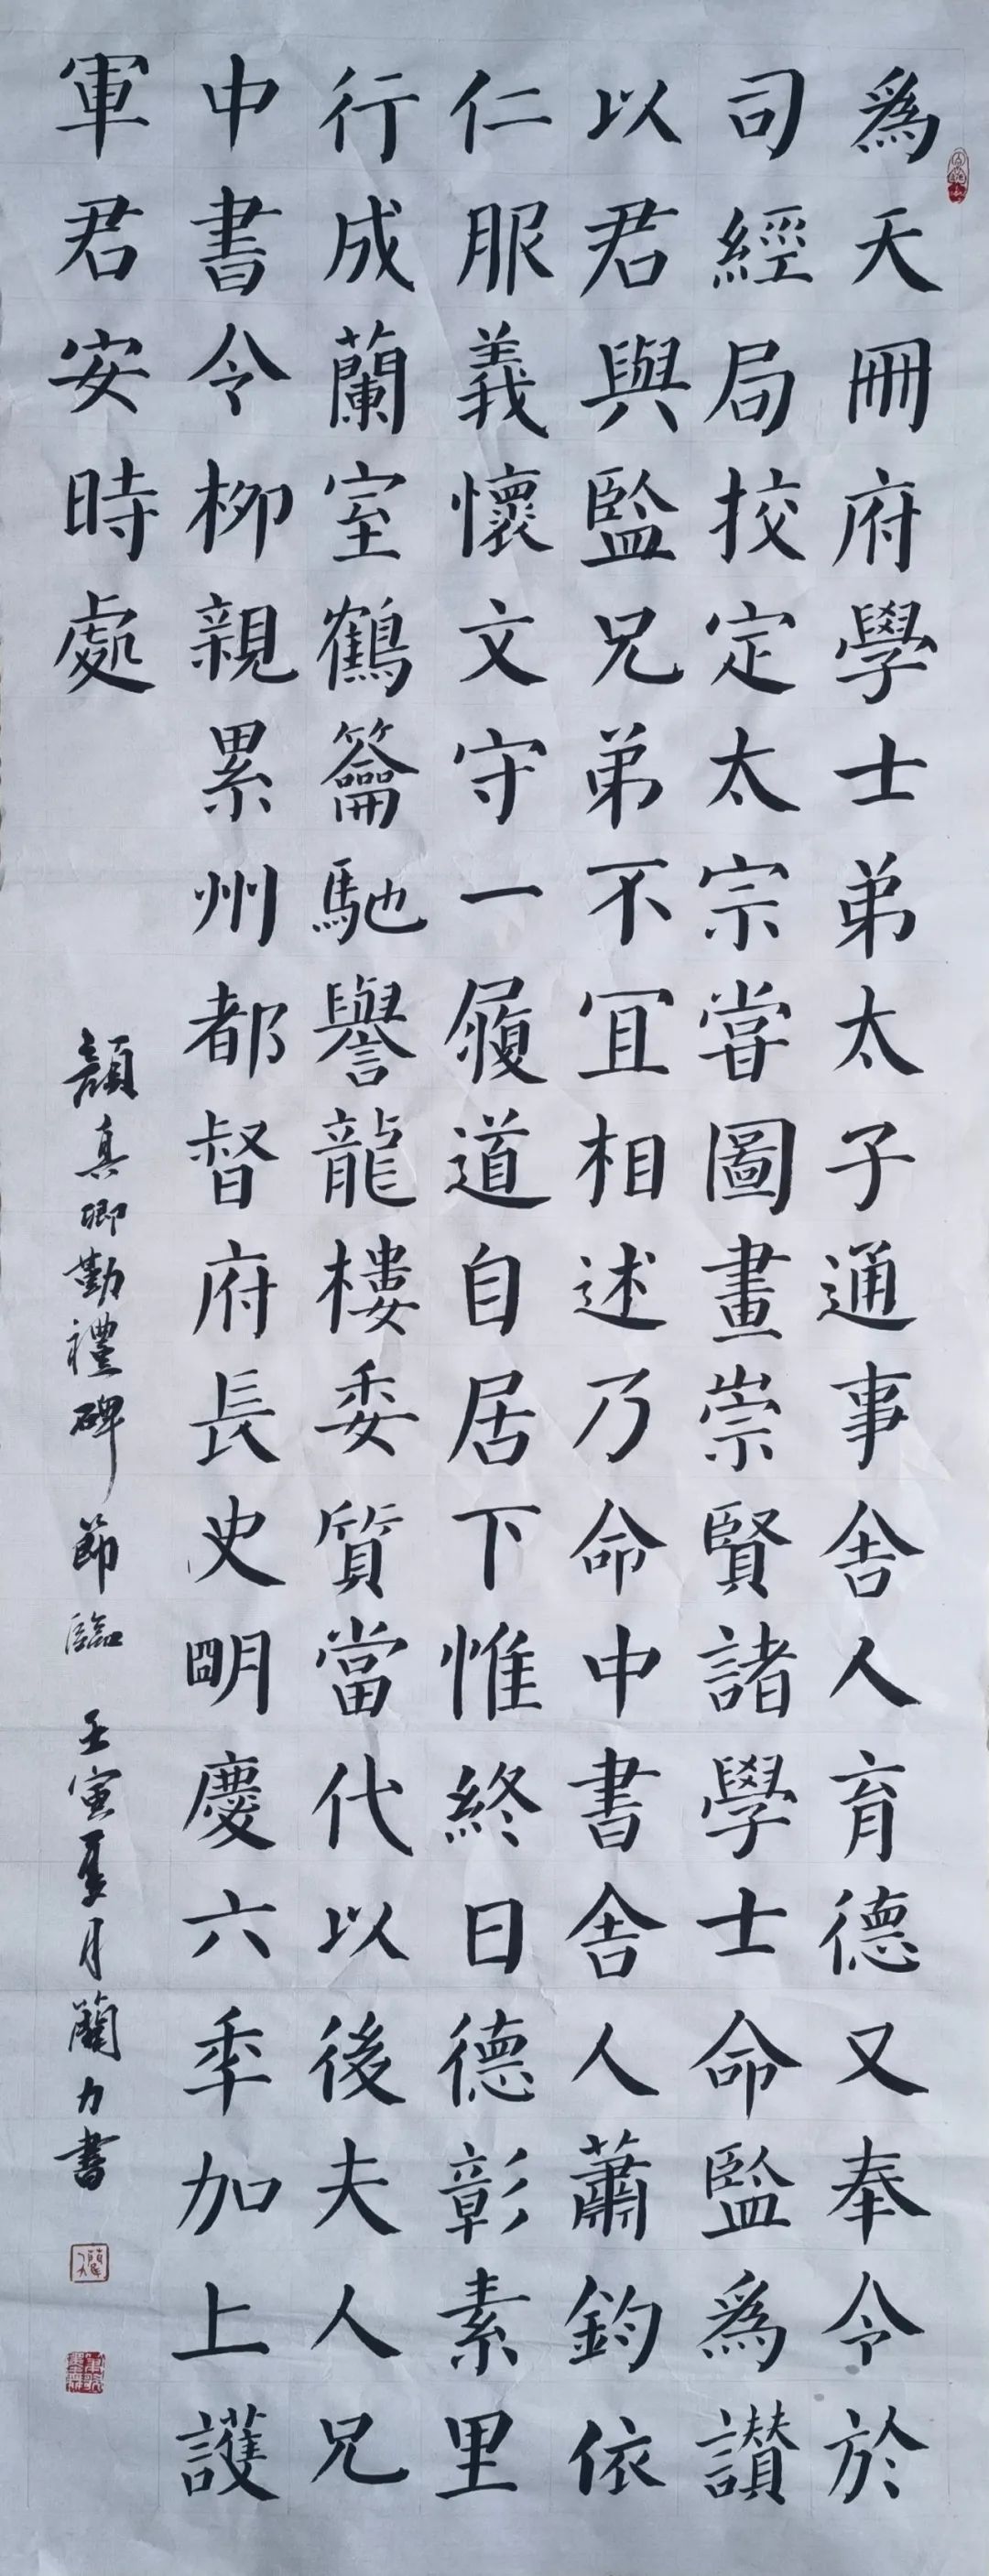 為天冊府學士弟太子通事舎人育德又奉令於
司經局挍定太宗甞圖畫崇賢諸學士命監為讃
以君與監兄弟不宜相述乃命中書舎人蕭鈞依
仁服義懷文守一履道自居下惟終日德彰素里
行成蘭室鶴籥馳譽龍樓委質當代以後夫人兄
中書令柳親累州都督府長史明慶六季加上護
軍君安時處
顏真卿勤禮碑節臨 壬寅夏月蘭力書